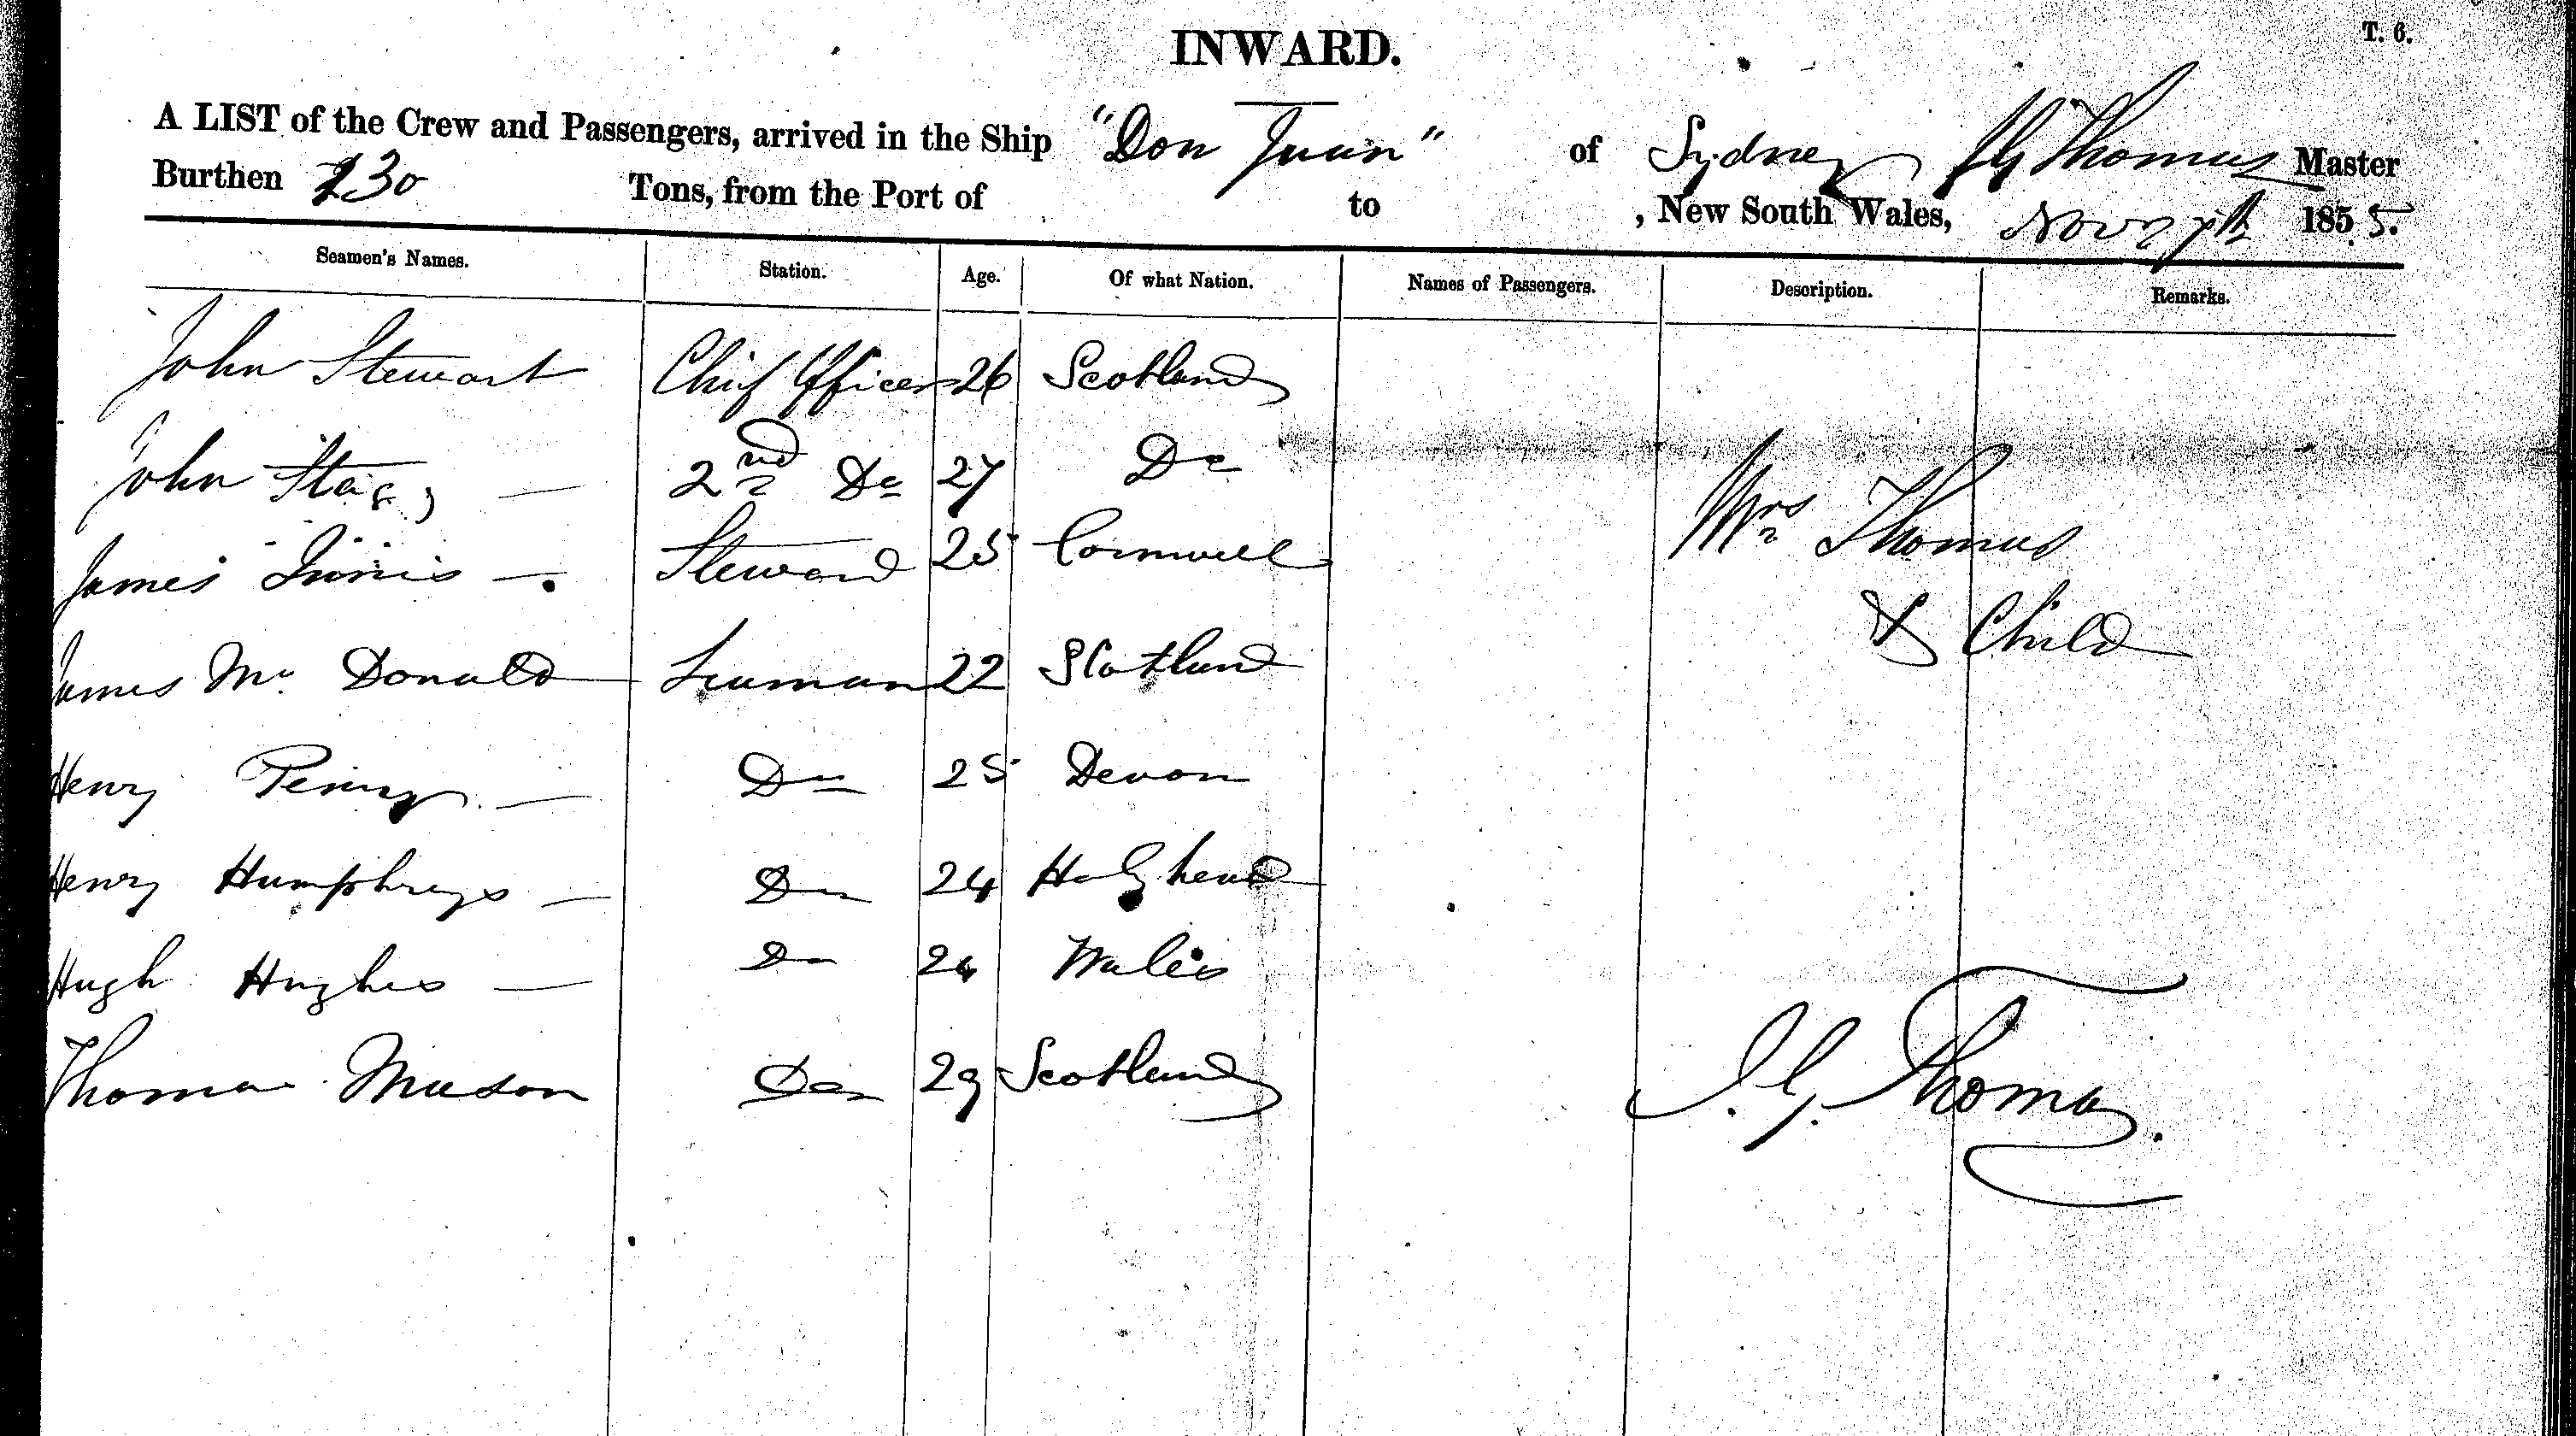 INWARD.
T. 6.
A LIST of the Crew and Passengers, arrived in the Ship "Don Juan" of Sydney J G Thomas Master
Burthen 230 Tons, from the Port of to , New South Wales, Nov 27th 1855.
Seamen's Names. Station. Age. Of what Nation. Names of Passengers. Description. Remarks.
John Stewart Chief Officer 26 Scotland
John Stagg 2nd Do 27 Do
Mrs Thomas
James Innis Steward 25 Cornwall
& Child
James Mc Donald Seaman 22 Scotland
Henry Penny Do 25 Devon
Henry Humphreys Do 24 Holyhead
Hugh Hughes Do 24 Wales
Thomas Mason Do 29 Scotland
J. G. Thomas.